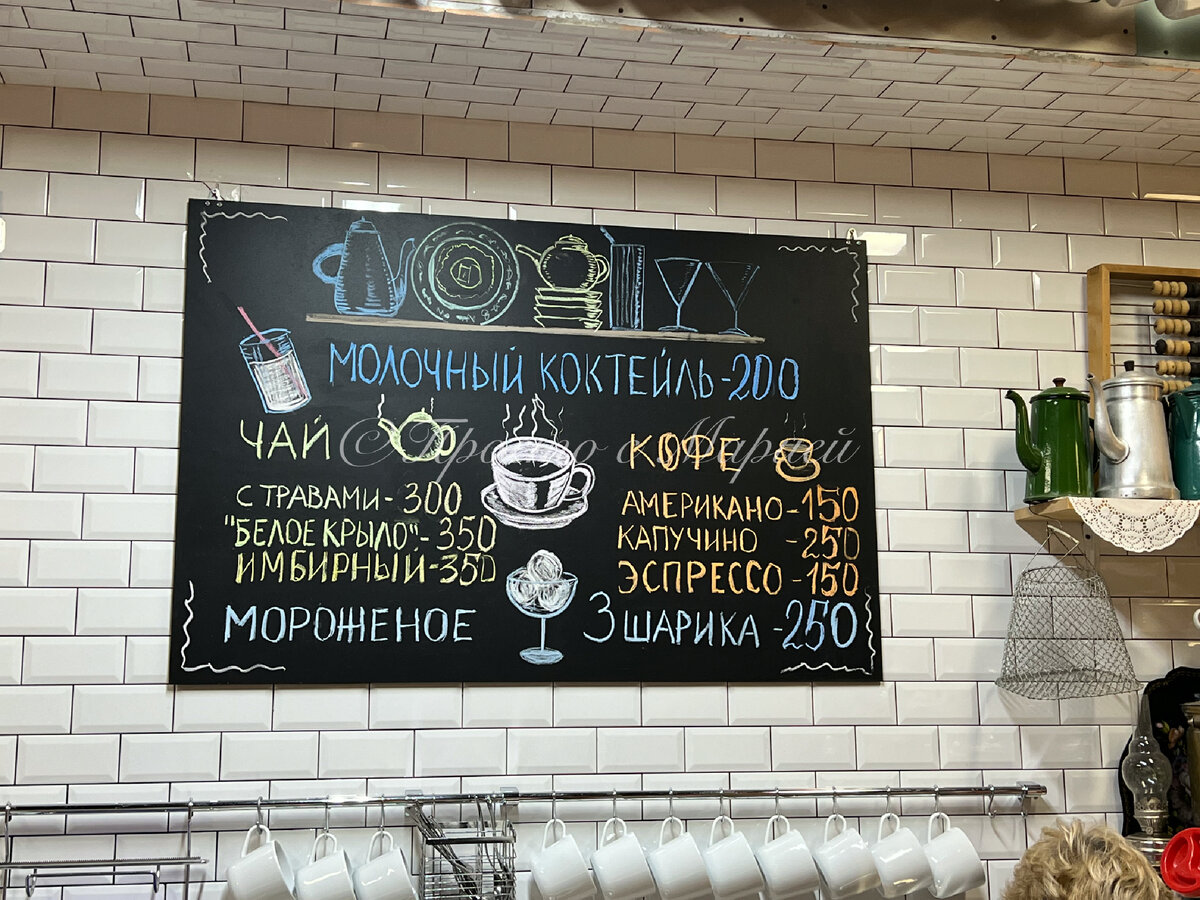 МОЛОЧНЫЙ КОКТЕЙЛЬ-200
ЧАЙ
С ТРАВАМИ-300
"БЕЛОЕ КРЫЛО"-350
ИМБИРНЫЙ-350
КОФЕ
АМЕРИКАНО-150
КАПУЧИНО -250
ЭСПРЕССО-150
МОРОЖЕНОЕ 3 ШАРИКА -250
©Просто с Марией